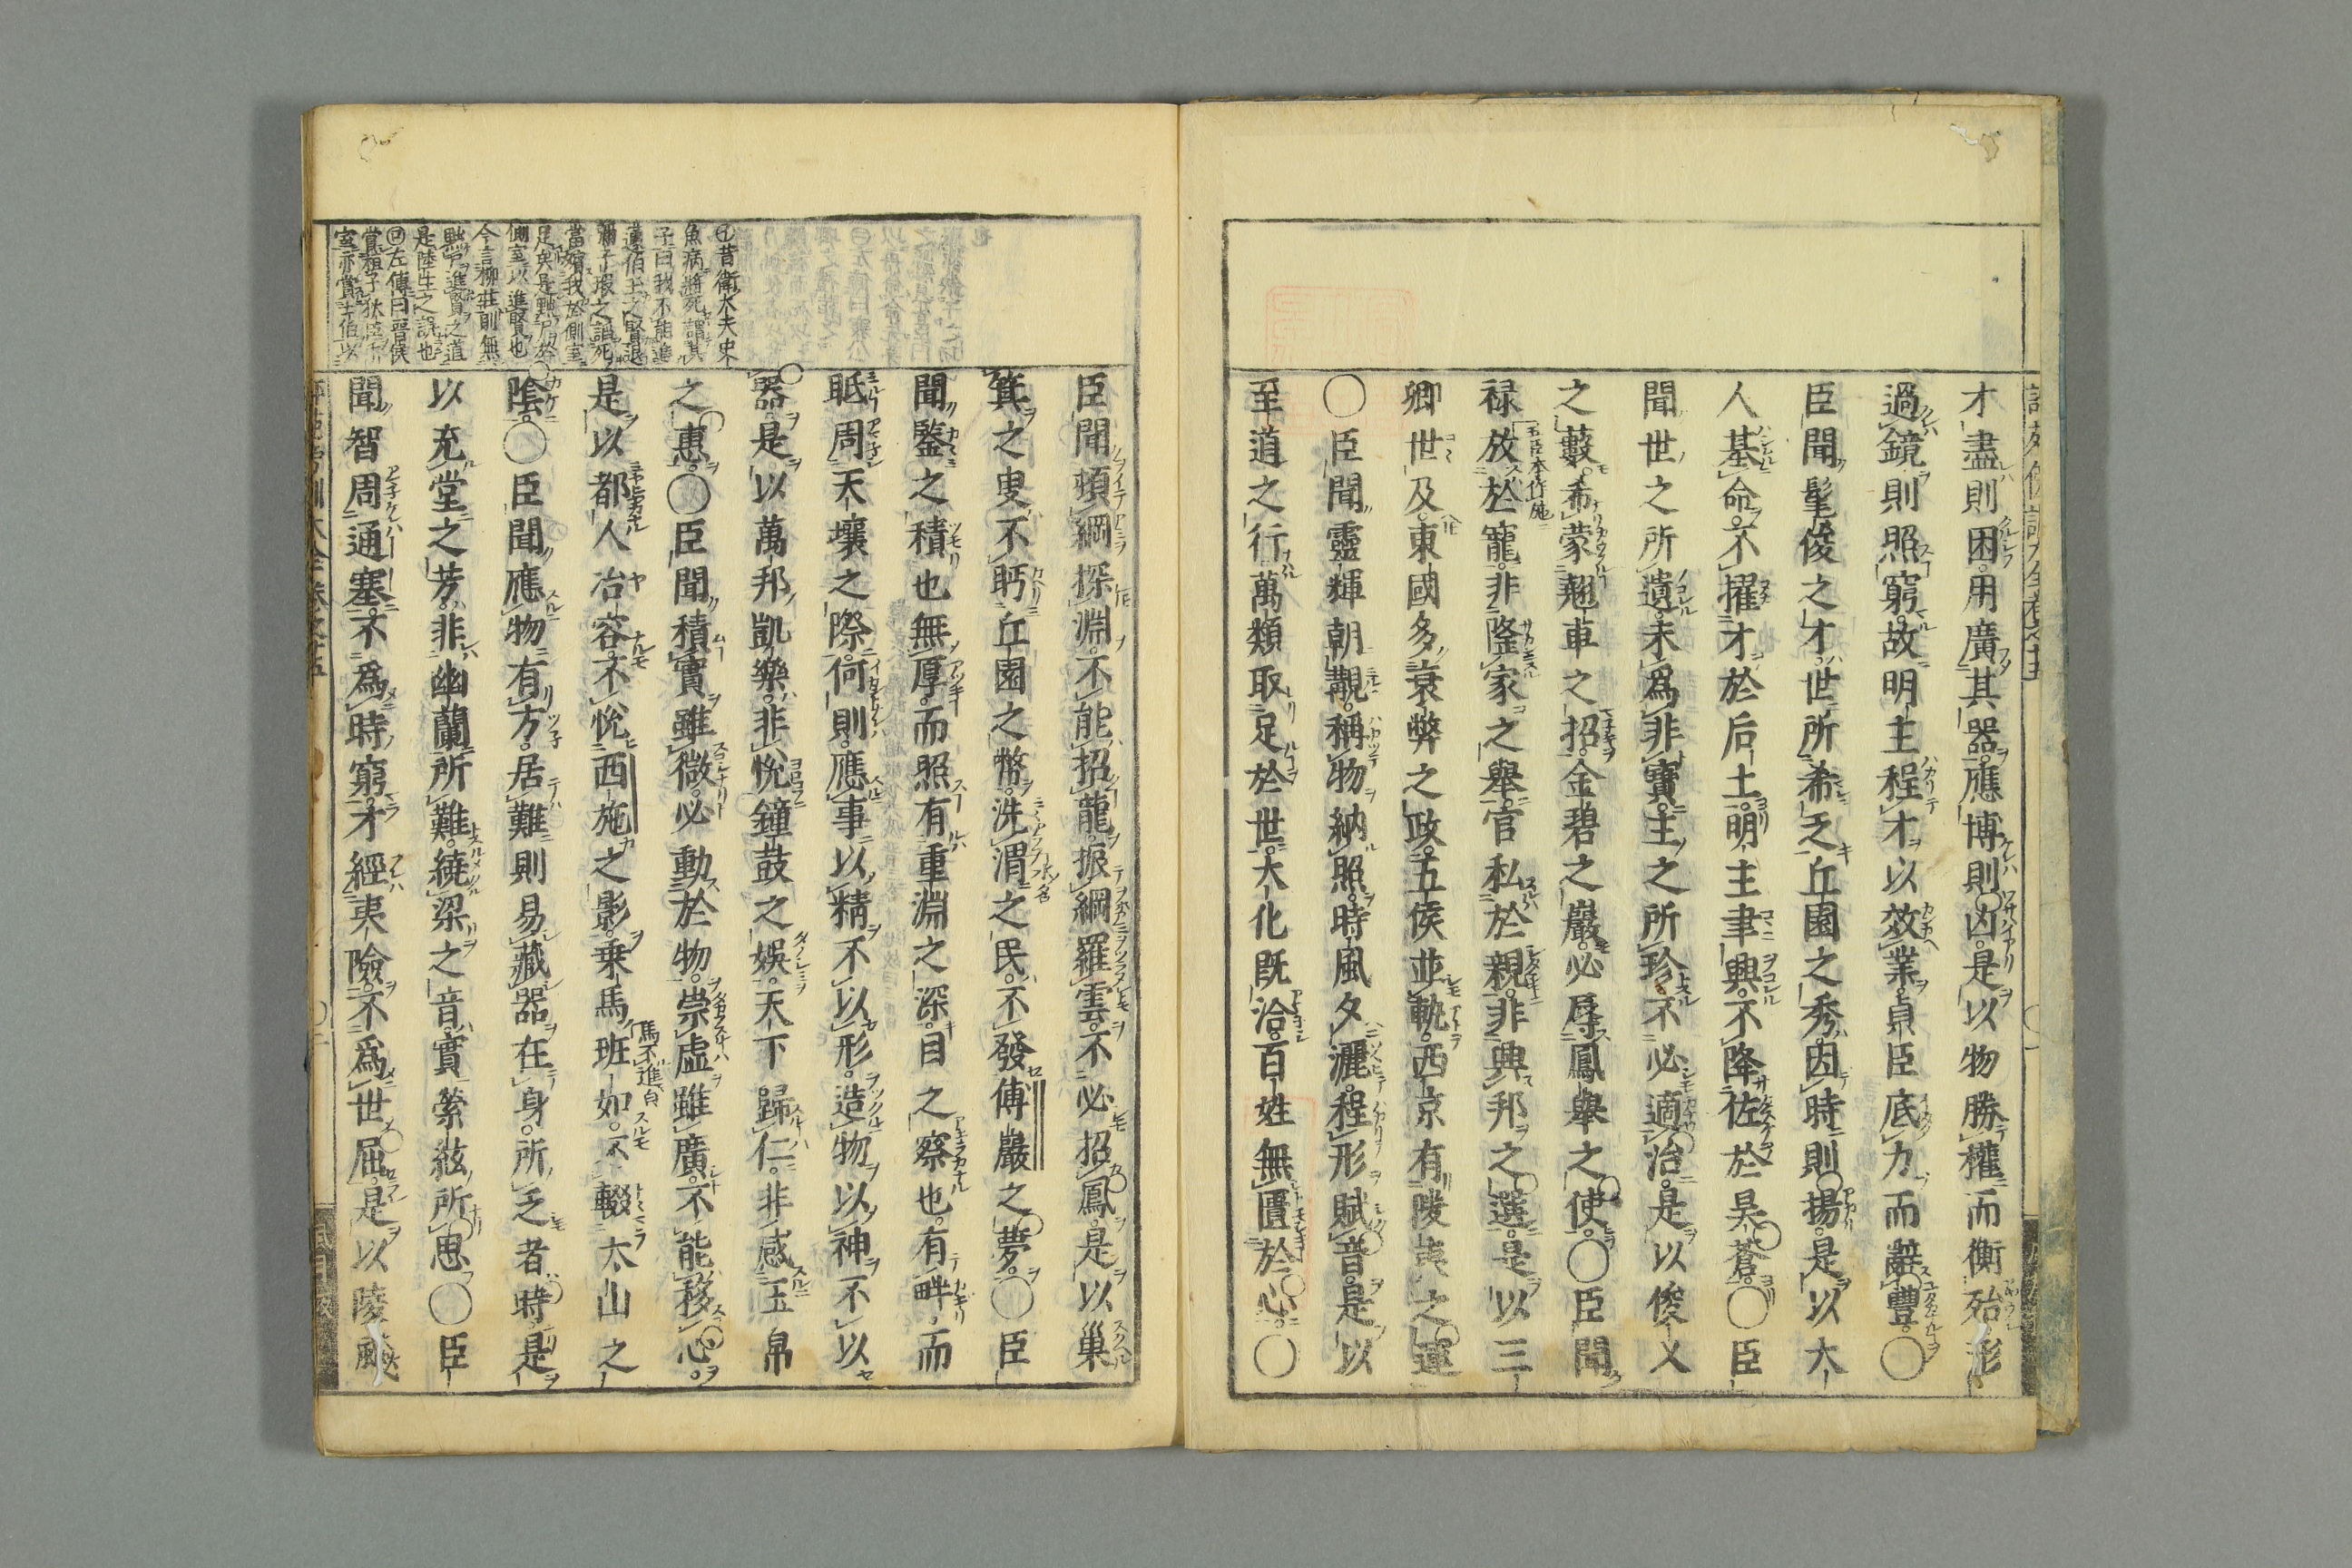 才盡則困用廣其器應博則凶是以物勝權而衡殆形
過鏡則照窮故明主程才以效業貞臣底力而辭豐〇
臣聞髦俊之才世所希乏丘園之秀因時則揚是以大
人基命不擢才於后土明主聿興不降佐於昊蒼〇臣
聞世之所遺未爲非寶主之所珍不必適治是以俊乂
之藪希蒙翹車之招金碧之巖必辱鳳舉之使〇臣聞
禄放於寵非隆家之舉官私於親非興邦之選是以三
五臣本作施
卿世及東國多衰弊之政五侯並軌西京有陵夷之運
〇臣聞靈輝朝覯稱物納照時風夕灑程形賦音是以
至道之行萬類取足於世大化既洽百姓無匱於心〇
臣聞頓網探淵不能招龍振綱羅雲不必招鳳是以巢
箕之叟不眄丘園之幣洗渭之民不發傅巖之夢〇臣
聞鑒之積也無厚而照有重淵之深目之察也有畔而
眡周天壤之際何則應事以精不以形造物以神不以
器是以萬邦凱樂非悅鐘鼓之娛天下歸仁非感玉帛
之惠〇臣聞積實雖微必動於物崇虛雖廣不能移心
是以都人冶容不悅西施之影乗馬班如不輟太山之
馬不進皃
陰〇臣聞應物有方居難則易藏器在身所乏者時是
以充堂之芳非幽蘭所難繞梁之音實縈絃所思〇臣
聞智周通塞不爲時窮才經夷險不爲世屈是以陵飈
㊀昔衛大夫史
魚病將死謂其
子曰我不能進
蘧伯玉之賢退
彌子瑕之謟死
當殯我於側室
足矣是黜尸於
側室以進賢也
今言柳莊則無
黜尸進賢之道
是陸生之誤也
㊁左傳曰晋侯
賞桓子狄臣千
室亦賞士伯以